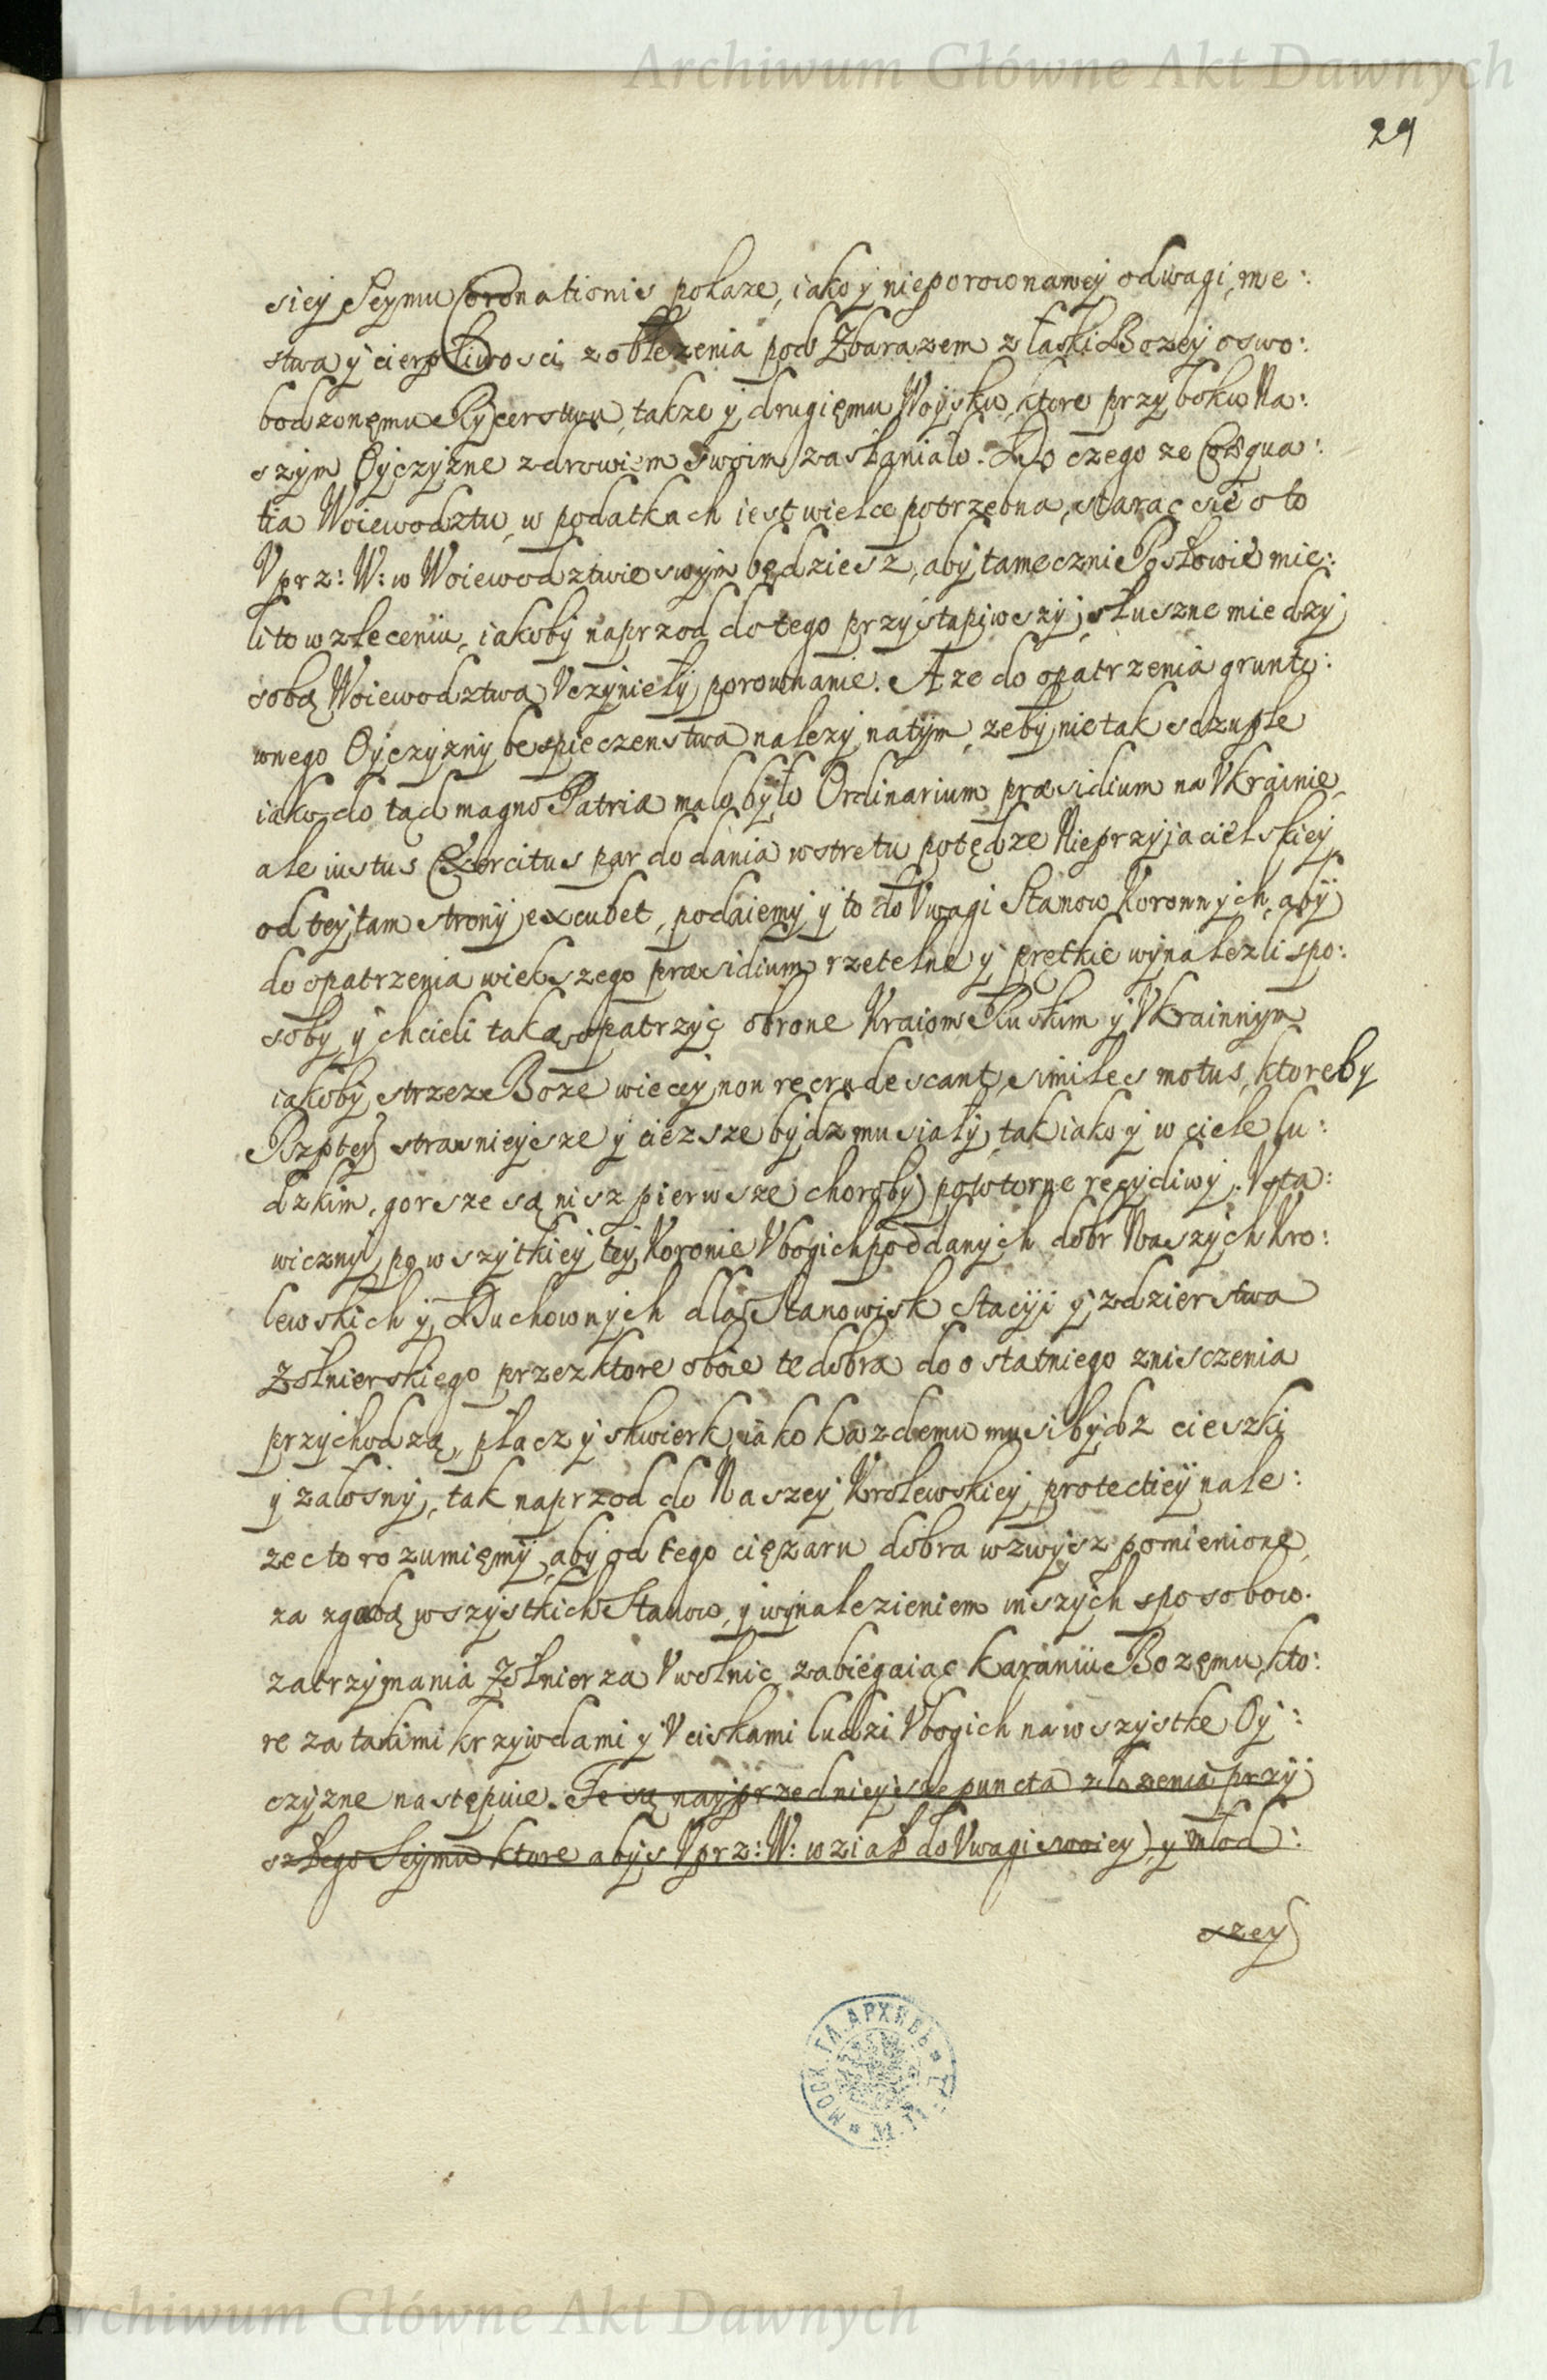 Archiwum Główne Akt Dawnych
29
siey Seymu Coronationis pokaze, iako y nieporownaney odwagi, me:
stwa y cierpliwosci z oblezenia pod Zbarazem z łaski Bozey oswo:
bodzonęmu Rycerstwu, takze y drugięmu Woysku, ktore przy boku Na:
szym Oyczyzne zdrowiem swoim zasłaniało. Do czego ze Coæqua:
tia Woiewodztw, w podatkach iest wielce potrzebna, starac sie o to
Vprz: W: w Woiewodztwie swym będziesz, aby tameczni Posłowie mie:
li to w zleceniu, iakoby naprzod do tego przystąpiwszy, słuszne miedzy
sobą Woiewodztwa Vczynieły porownanie. A ze do opatrzenia grunto:
wnego Oyczyzny bespieczenstwa nalezy na tym, zeby nie tak sczupłe
iako do tąd magno Patriæ malo było Ordinarium præsidium na Vkrainie,
ale iustus Exercitus par do dania wstretu potędze Nieprzyjacielskiey
od tey tam strony excubet, podaiemy y to do Vwagi Stanow Koronnych, aby
do opatrzenia wiekszego præsidium rzetelne y prętkie wynalezli spo:
soby, y chcieli taką opatrzyć obrone Kraiom Ruskim y Vkrainnym
iakoby strzeze Boze wiecey non recrudescant, similes motus, ktoreby
Rzptey strawnieysze y ciezsze bydz musiały, tak iako y w ciele lu:
dzkim, gorsze są nisz pierwsze choroby powtorne recydiwy. Vsta:
wiczny po wszytkiey tey Koronie Vbogich poddanych dobr Naszych Kro:
lewskich y Duchownych dla Stanowisk Stacyi y zdzierstwa
Zołnierskiego przez ktore oboie te dobra do ostatniego znisczenia
przychodzą, płacz y skwierk, iako kazdemu musi bydz cieszki
y załosny, tak naprzod do Naszey Krolewskiey protectiey nale:
zec to rozumięmy, aby od tego cięzaru dobra wzwysz pomienione,
za zgodą wszystkich Stanow, y wynalezieniem inszych sposobow
zatrzymania Zołnierza Vwolnic, zabiegaiąc karaniu Bozęmu, kto:
re za takimi krzywdami y Vciskami ludzi Vbogich na wszystke Oy:
czyzne nastepuie. Te są nayprzednieysze puncta złozenia przy
szłego Seymu ktore abys Vprz: W: wział do Vwagi swoiey, y młod:
szey
МОСК. ГЛ. АРХИВЪ
Archiwum Główne Akt Dawnych